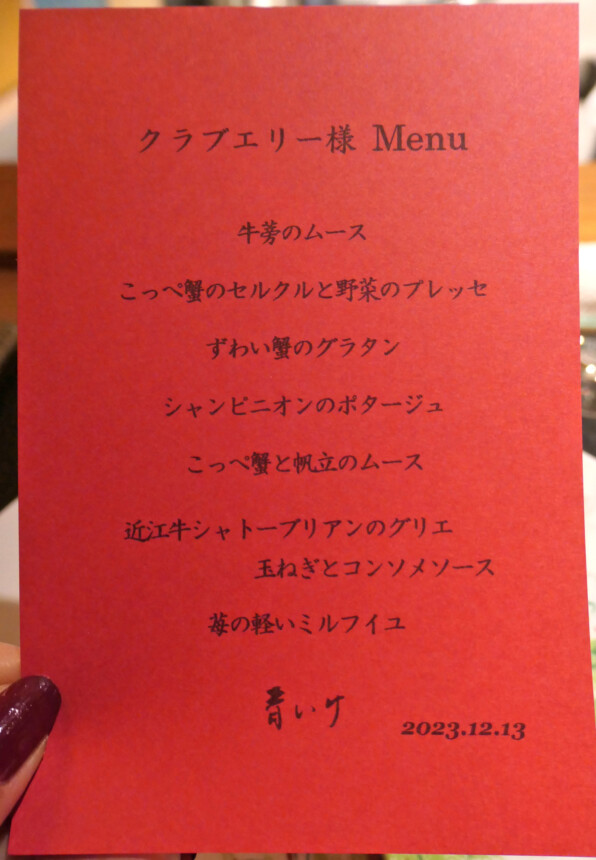 クラブエリー様 Menu
牛蒡のムース
こっぺ蟹のセルクルと野菜のブレッセ
ずわい蟹のグラタン
シャンピニオンのポタージュ
こっぺ蟹と帆立のムース
近江牛シャトーブリアンのグリエ
玉ねぎとコンソメソース
苺の軽いミルフイユ
青いけ
2023.12.13